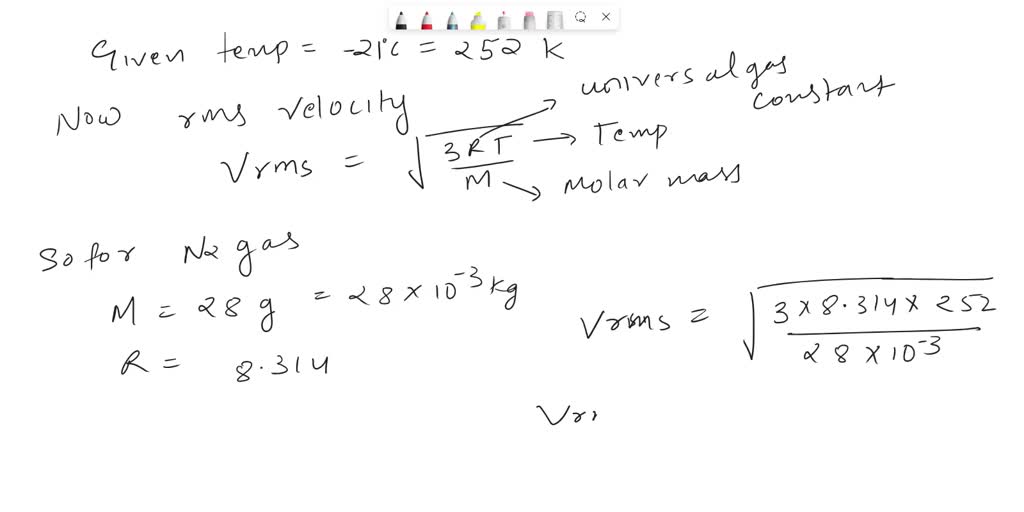 Given temp = -21°C = 252 K
Now rms velocity
universal gas constant
Vrms = √(3RT/M)
Temp
Molar mass
So for N2 gas
M = 28 g = 28 × 10⁻³ kg
R = 8.314
Vrms = √(3 × 8.314 × 252 / 28 × 10⁻³)
Vr